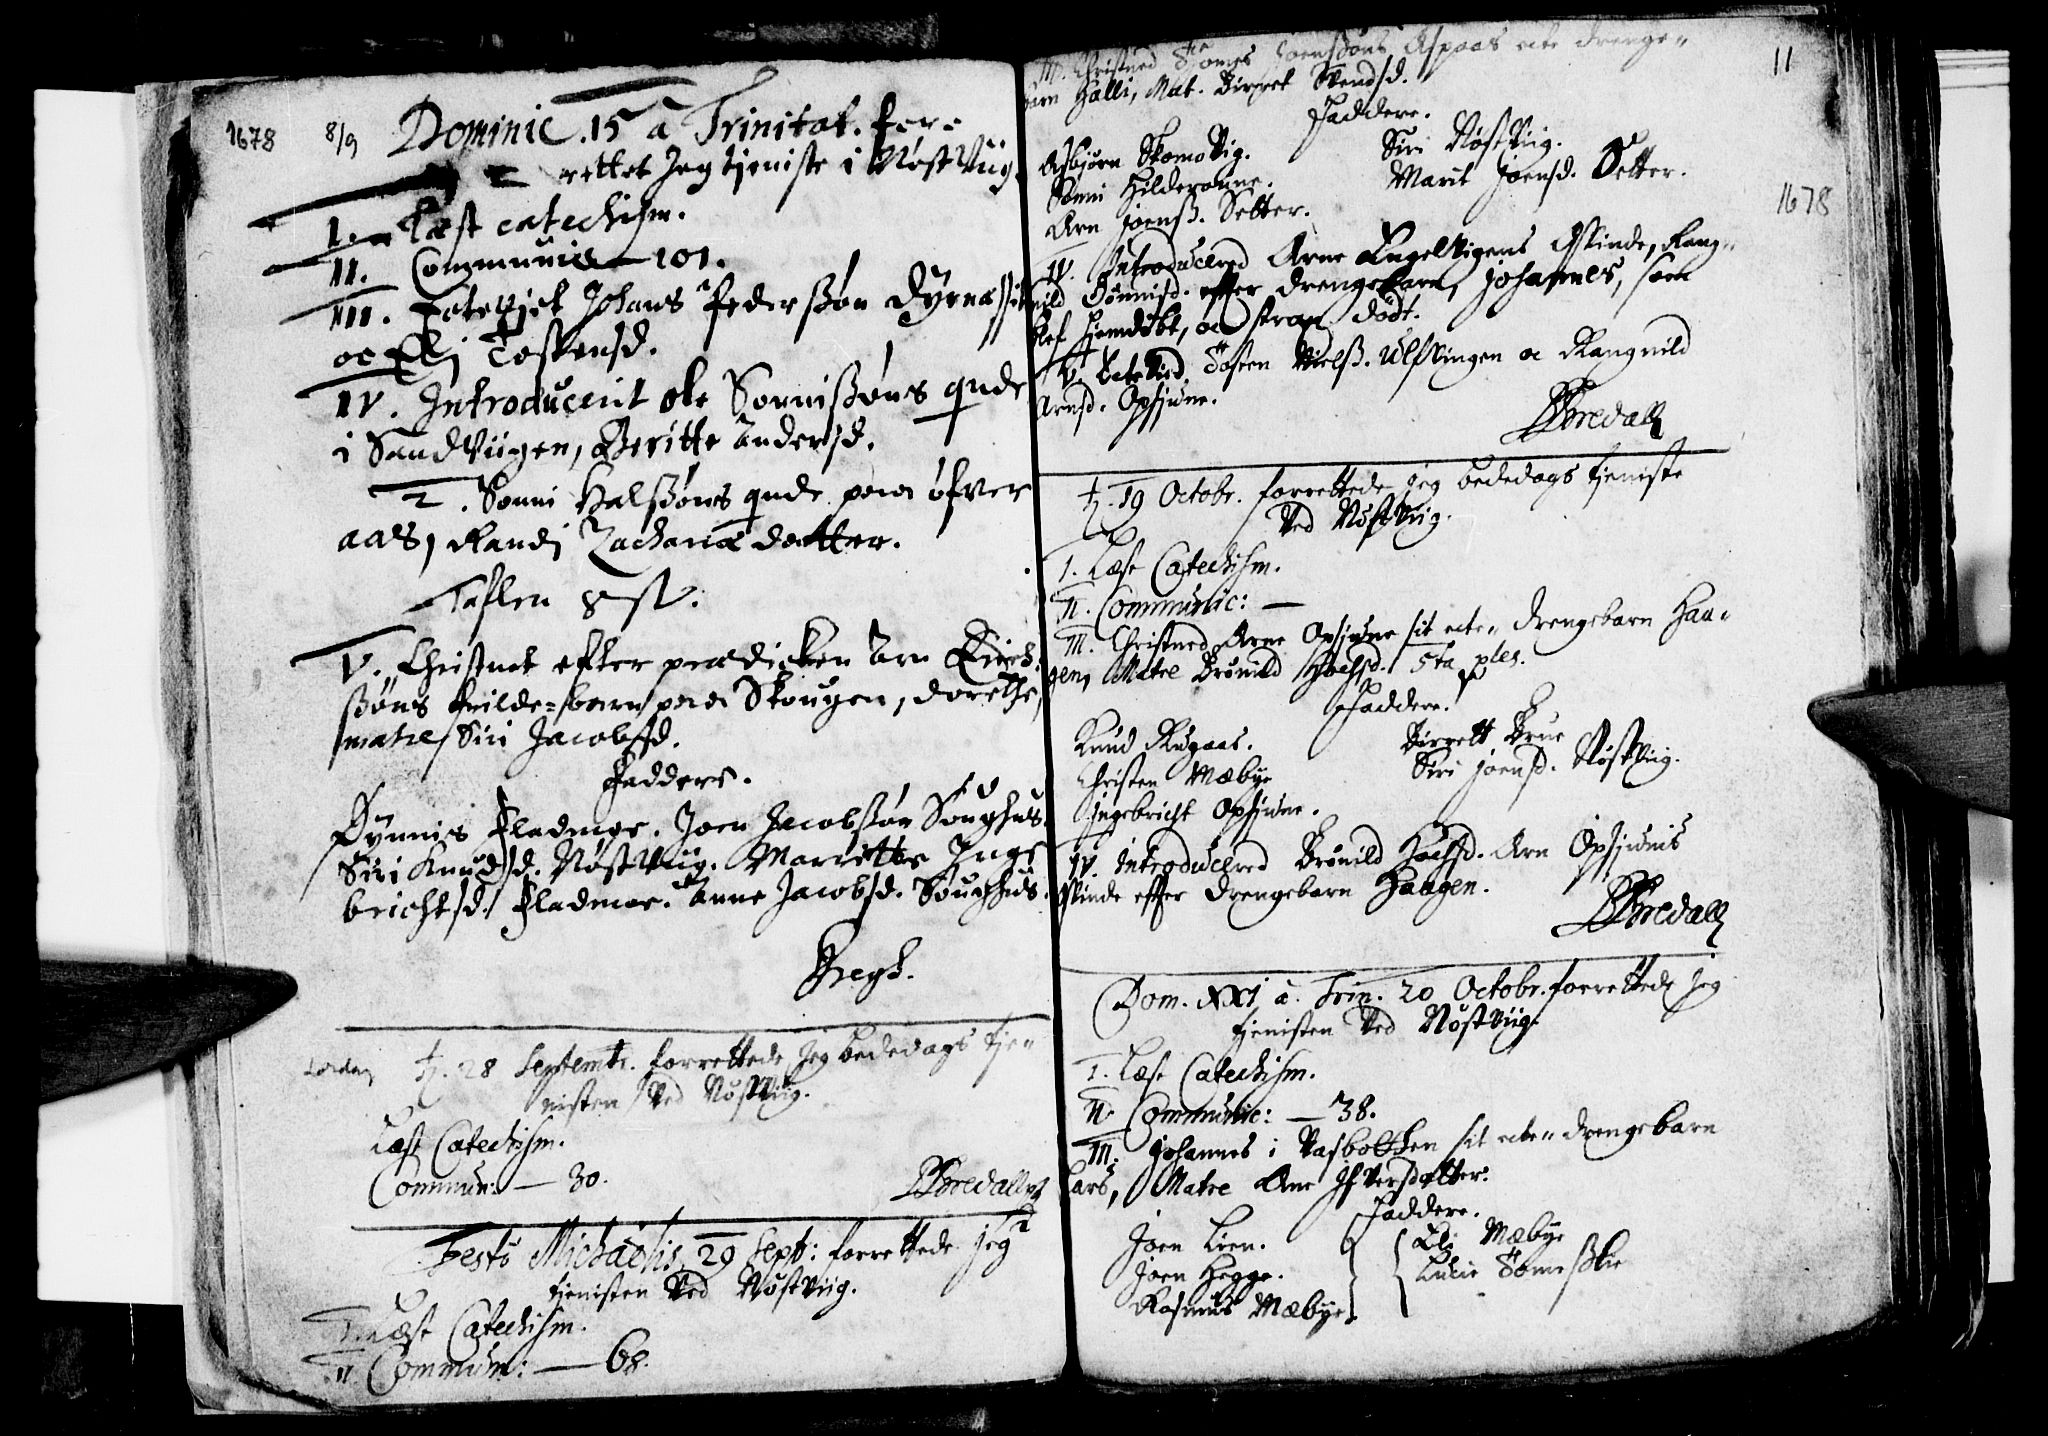 1678 8/9 Dominic. 15 à Trinitat. for=
rettet Jeg tjeniste i Nøstviig.
I. Læst catechism.
II. Communic — 101.
III. Johans Pedersøn Dyrnæssit
oc Elj Tostensd.
IV. Introducerit Ole Sonnissøns qnde
i Sandviigen, Beritte Andersd.
2. Sonni Halssøns qnde paa öfver
aas, Randj Zachariæ datter.
Taflen
V. Christnet efter prædicken Arn
ssøns pilde=barn paa Skougen, dorethe,
matre Siri Jacobsd.
Faddere.
Dynnis Fladmoe. Joen Jacobssøn Soughus.
Siri Knudsd. Nøstviig. Maritte Inge
brichtsd. Fladmoe. Anne Jacobsd. Soughus.
Lørdag ♄. 28 Septembr. forrettede Jeg bededags tje=
nisten Ved Nøstviig.
Læst Catechism.
Commun: — 30.
Bredall
Festo Michaëlis, 29 Sept: forrettede jeg
tjenisten Ved Nøstviig.
I. Læst Catechism.
II. Commun: — 68.
11
III. Christned Joenssøns Aspaas ecte drenge=
barn Halli, Mat. Birret Svendsd.
Faddere.
Asbjørn Skomovig. Siri Nøstviig.
Sonni Hilderonne. Marit Joensd. Setter.
Arn Joenss. Setter.
1678
IV. Introducered Arne Engelvigens Qvinde, Rang=
nild Sonnisd. effter drengebarn, Johannes, som
blef hjemdøbt, oc strax dødt.
V. Tosten Nielss. Ulfvingen oc Rangnild
Arnsd. Opsjune.
Bredall
♄. 19 Octobr. forrettede Jeg bededags tjeniste
Ved Nøstviig.
I. Læst Catechism.
II. Communic: —
III. Christned Arne Opsjune sit ecte= drengebarn Haa=
gen, Matre Brønild Joensd.
Faddere.
Knud Rugaas. Birrett Brue
Christen Mæbye Siri Joensd. Nøstviig.
Ingebricht Opsjune.
IV. Introducered Brønild Joensd. Arn Opsjunis
Qvinde effter drengebarn Haagen.
Bredall
Dom. XXI à. Trin. 20 Octobr. forrettede Jeg
tjenisten Ved Nøstviig.
I. Læst Catechism.
II. Communic: — 38.
III. Johannes i Vasbotten sit ecte= drengebarn
Lars, Matre Ane Ifversdatter.
Faddere.
Joen Lien. Eli Mæbye
Joen Hegge. Lucie Tømeslie
Rasmus Mæbye